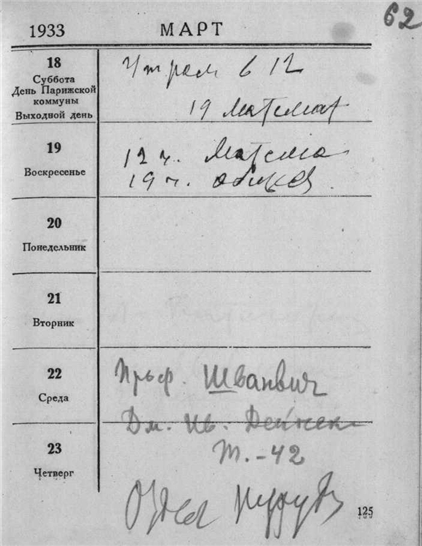 62
1933 МАРТ
18
Суббота
День Парижской
коммуны
Выходной день
Утром в 12
19 Математ
19
Воскресенье
12 ч. Матема
19 ч.
20
Понедельник
21
Вторник
22
Среда
Проф. Шванвич
Дм. Ив. Дейнек
23
Четверг
Т. - 42
125